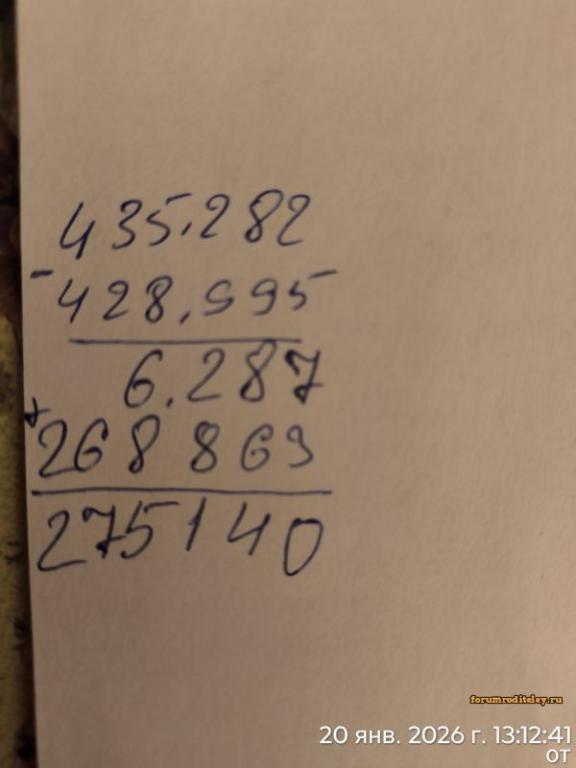 435.282
-
428.995
6.287
+
268 863
275140
forumroditeley.ru
20 янв. 2026 г. 13:12:41
от